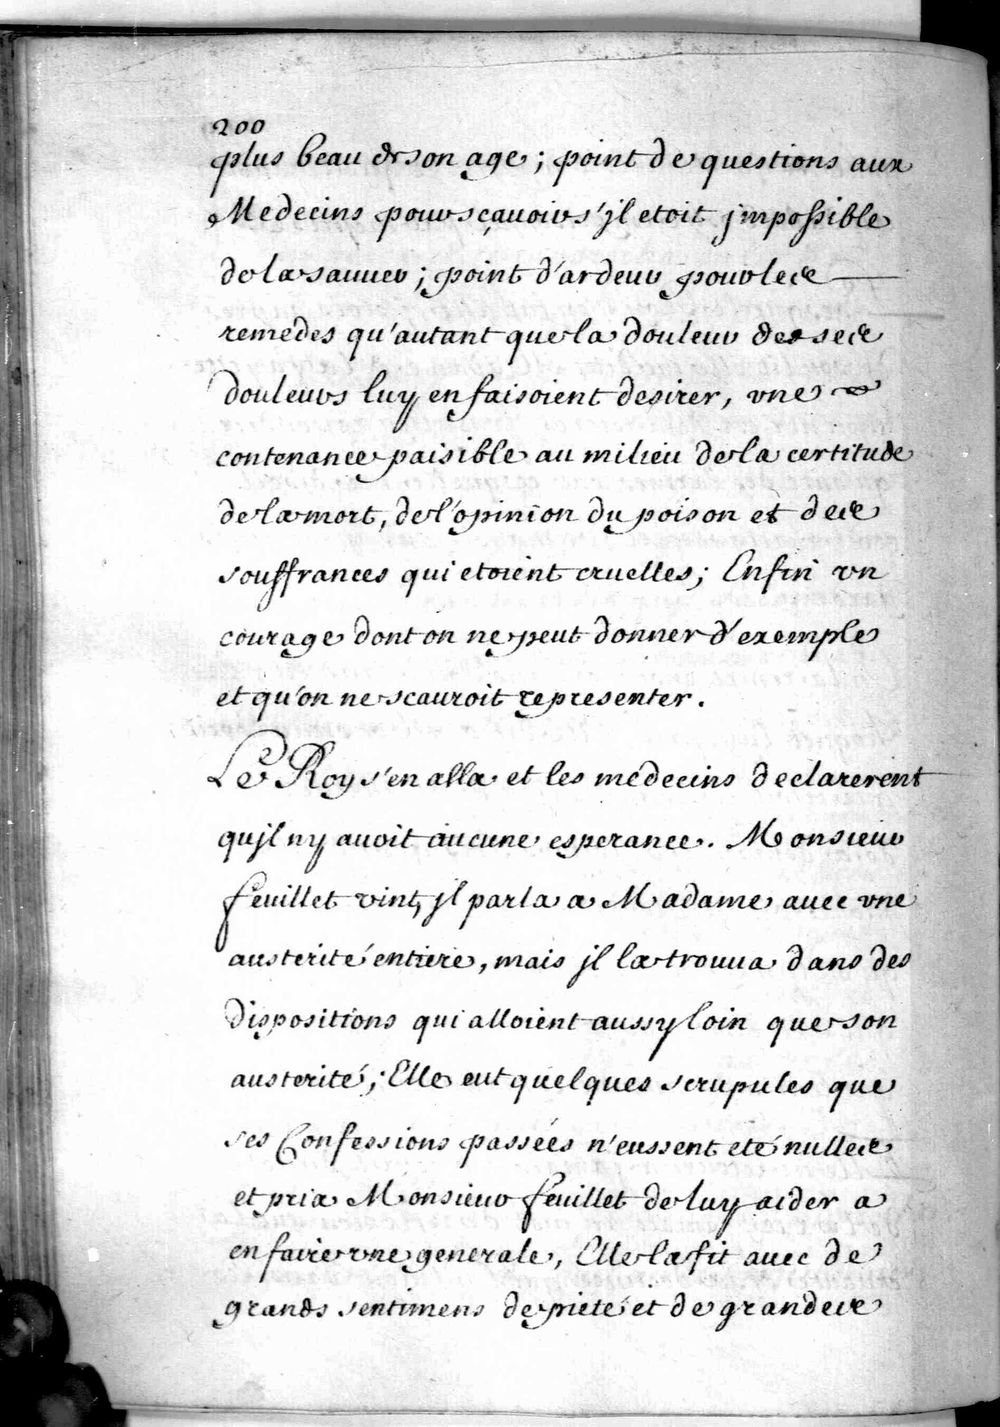 200
plus beau de son age; point de questions aux
Medecins pour sçauoir s'jl etoit jmpossible
de la sauuer; point d'ardeur pour les
remedes qu'autant que la douleur de ses
douleurs luy en faisoient desirer, vne
contenance paisible au milieu de la certitude
de la mort, de l'opinion du poison et des
souffrances qui etoient cruelles; Enfin vn
courage dont on ne peut donner d'exemple
et qu'on ne scauroit representer.
Le Roy s'en alla et les medecins declarerent
qu'jl ny auoit aucune esperance. Monsieur
feuillet vint, jl parla a Madame auec vne
austerité entiere, mais jl la trouua dans des
dispositions qui alloient aussy loin que son
austerité; Elle eut quelques scrupules que
ses Confessions passées n'eussent eté nulles
et pria Monsieur feuillet de luy aider a
en faire vne generale, Elle la fit auec de
grands sentimens de pieté et de grandes